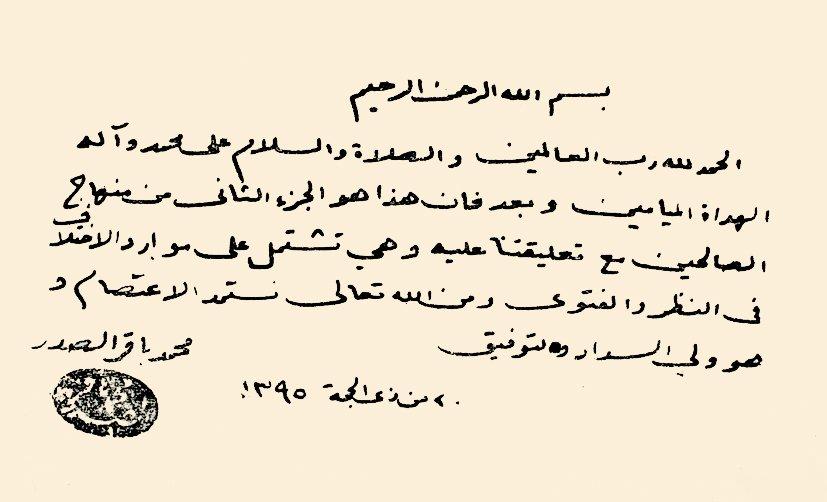 بسم الله الرحمن الرحيم
الحمد لله رب العالمين والصلاة والسلام على محمد وآله
الهداة الميامين وبعد فان هذا هو الجزء الثاني من منهاج
الصالحين مع تعليقتنا عليه وهي تشتمل على موارد الاختلاف
في النظر والفتوى ومن الله تعالى نستمد الاعتصام و
هو ولي السداد والتوفيق
محمد باقر الصدر
٢٠ من ذى الحجة ١٣٩٥